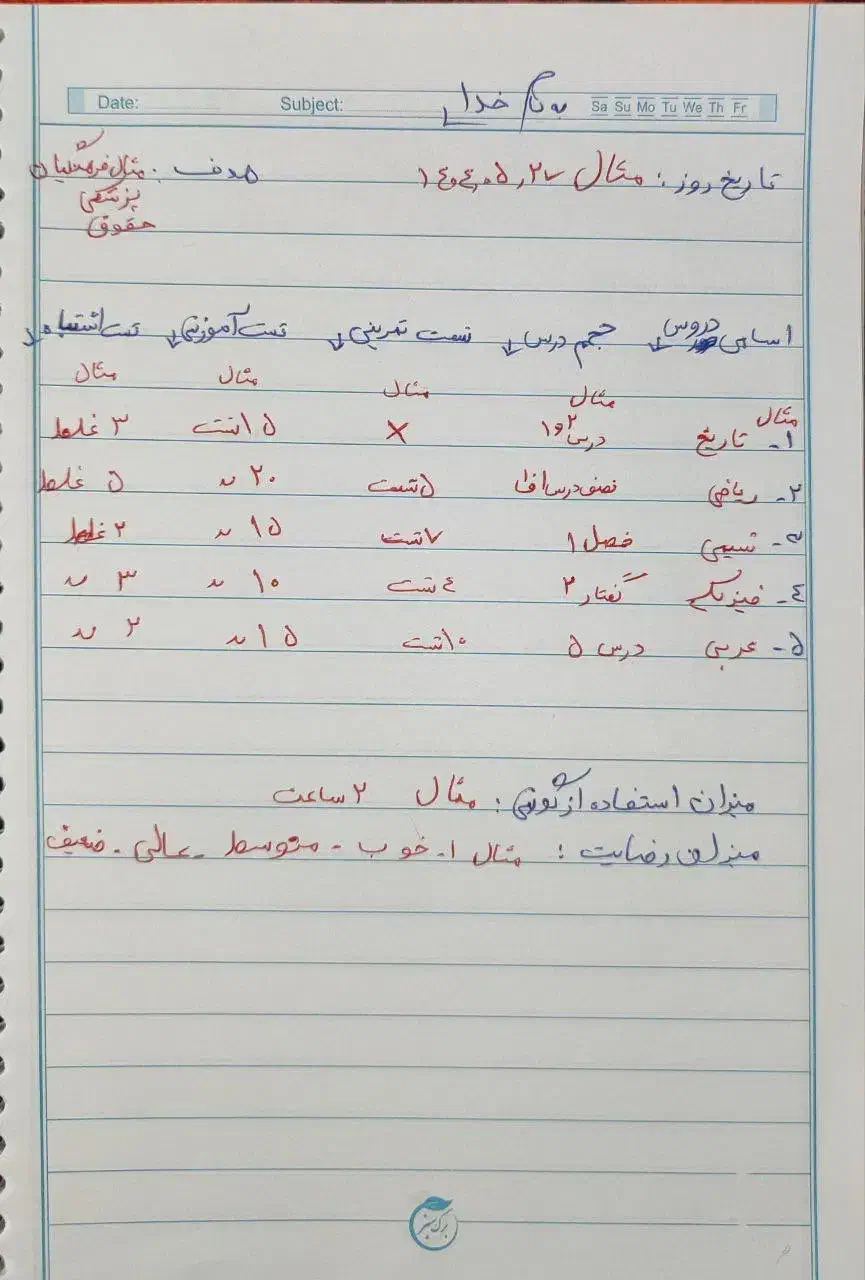 به نام خدا
Date: Subject: Sa Su Mo Tu We Th Fr
تاریخ روز: مثال ۱۴۰۴،۰۵،۲۷ هدف: مثال فرهنگیان
پزشکی
حقوق
اسامی دروس ↓ حجم درس ↓ تست تمرینی ↓ تست آموزشی ↓ تست اشتباه ↓
مثال مثال مثال مثال مثال
۱- تاریخ درس ۱و۲ × ۱۵ تست ۳ غلط
۲- ریاضی نصف درس ۱ ۵ تست ۲۰ " ۵ غلط
۳- شیمی فصل ۱ ۷ تست ۱۵ " ۲ غلط
۴- فیزیک گفتار ۲ ۴ تست ۱۰ " ۳ "
۵- عربی درس ۵ ۱۰ تست ۱۵ " ۲ "
میزان استفاده از گوشی: مثال ۲ ساعت
میزان رضایت: مثال ۱- خوب - متوسط - عالی - ضعیف
برگ سبز